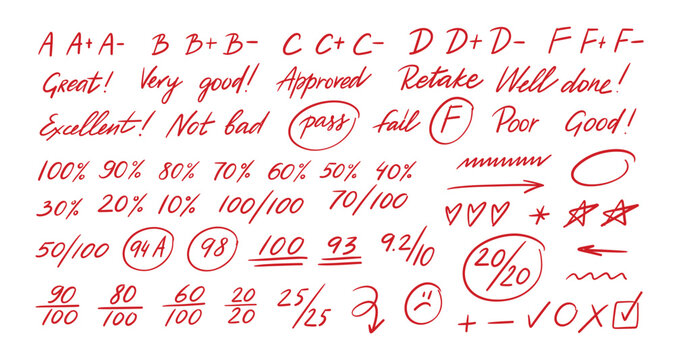 A A+ A- B B+ B- C C+ C- D D+ D- F F+ F-
Great! Very good! Approved Retake Well done!
Excellent! Not bad pass fail F Poor Good!
100% 90% 80% 70% 60% 50% 40%
30% 20% 10% 100/100 70/100
50/100 94A 98 100 93 9.2/10 20/20
90/100 80/100 60/100 20/20 25/25